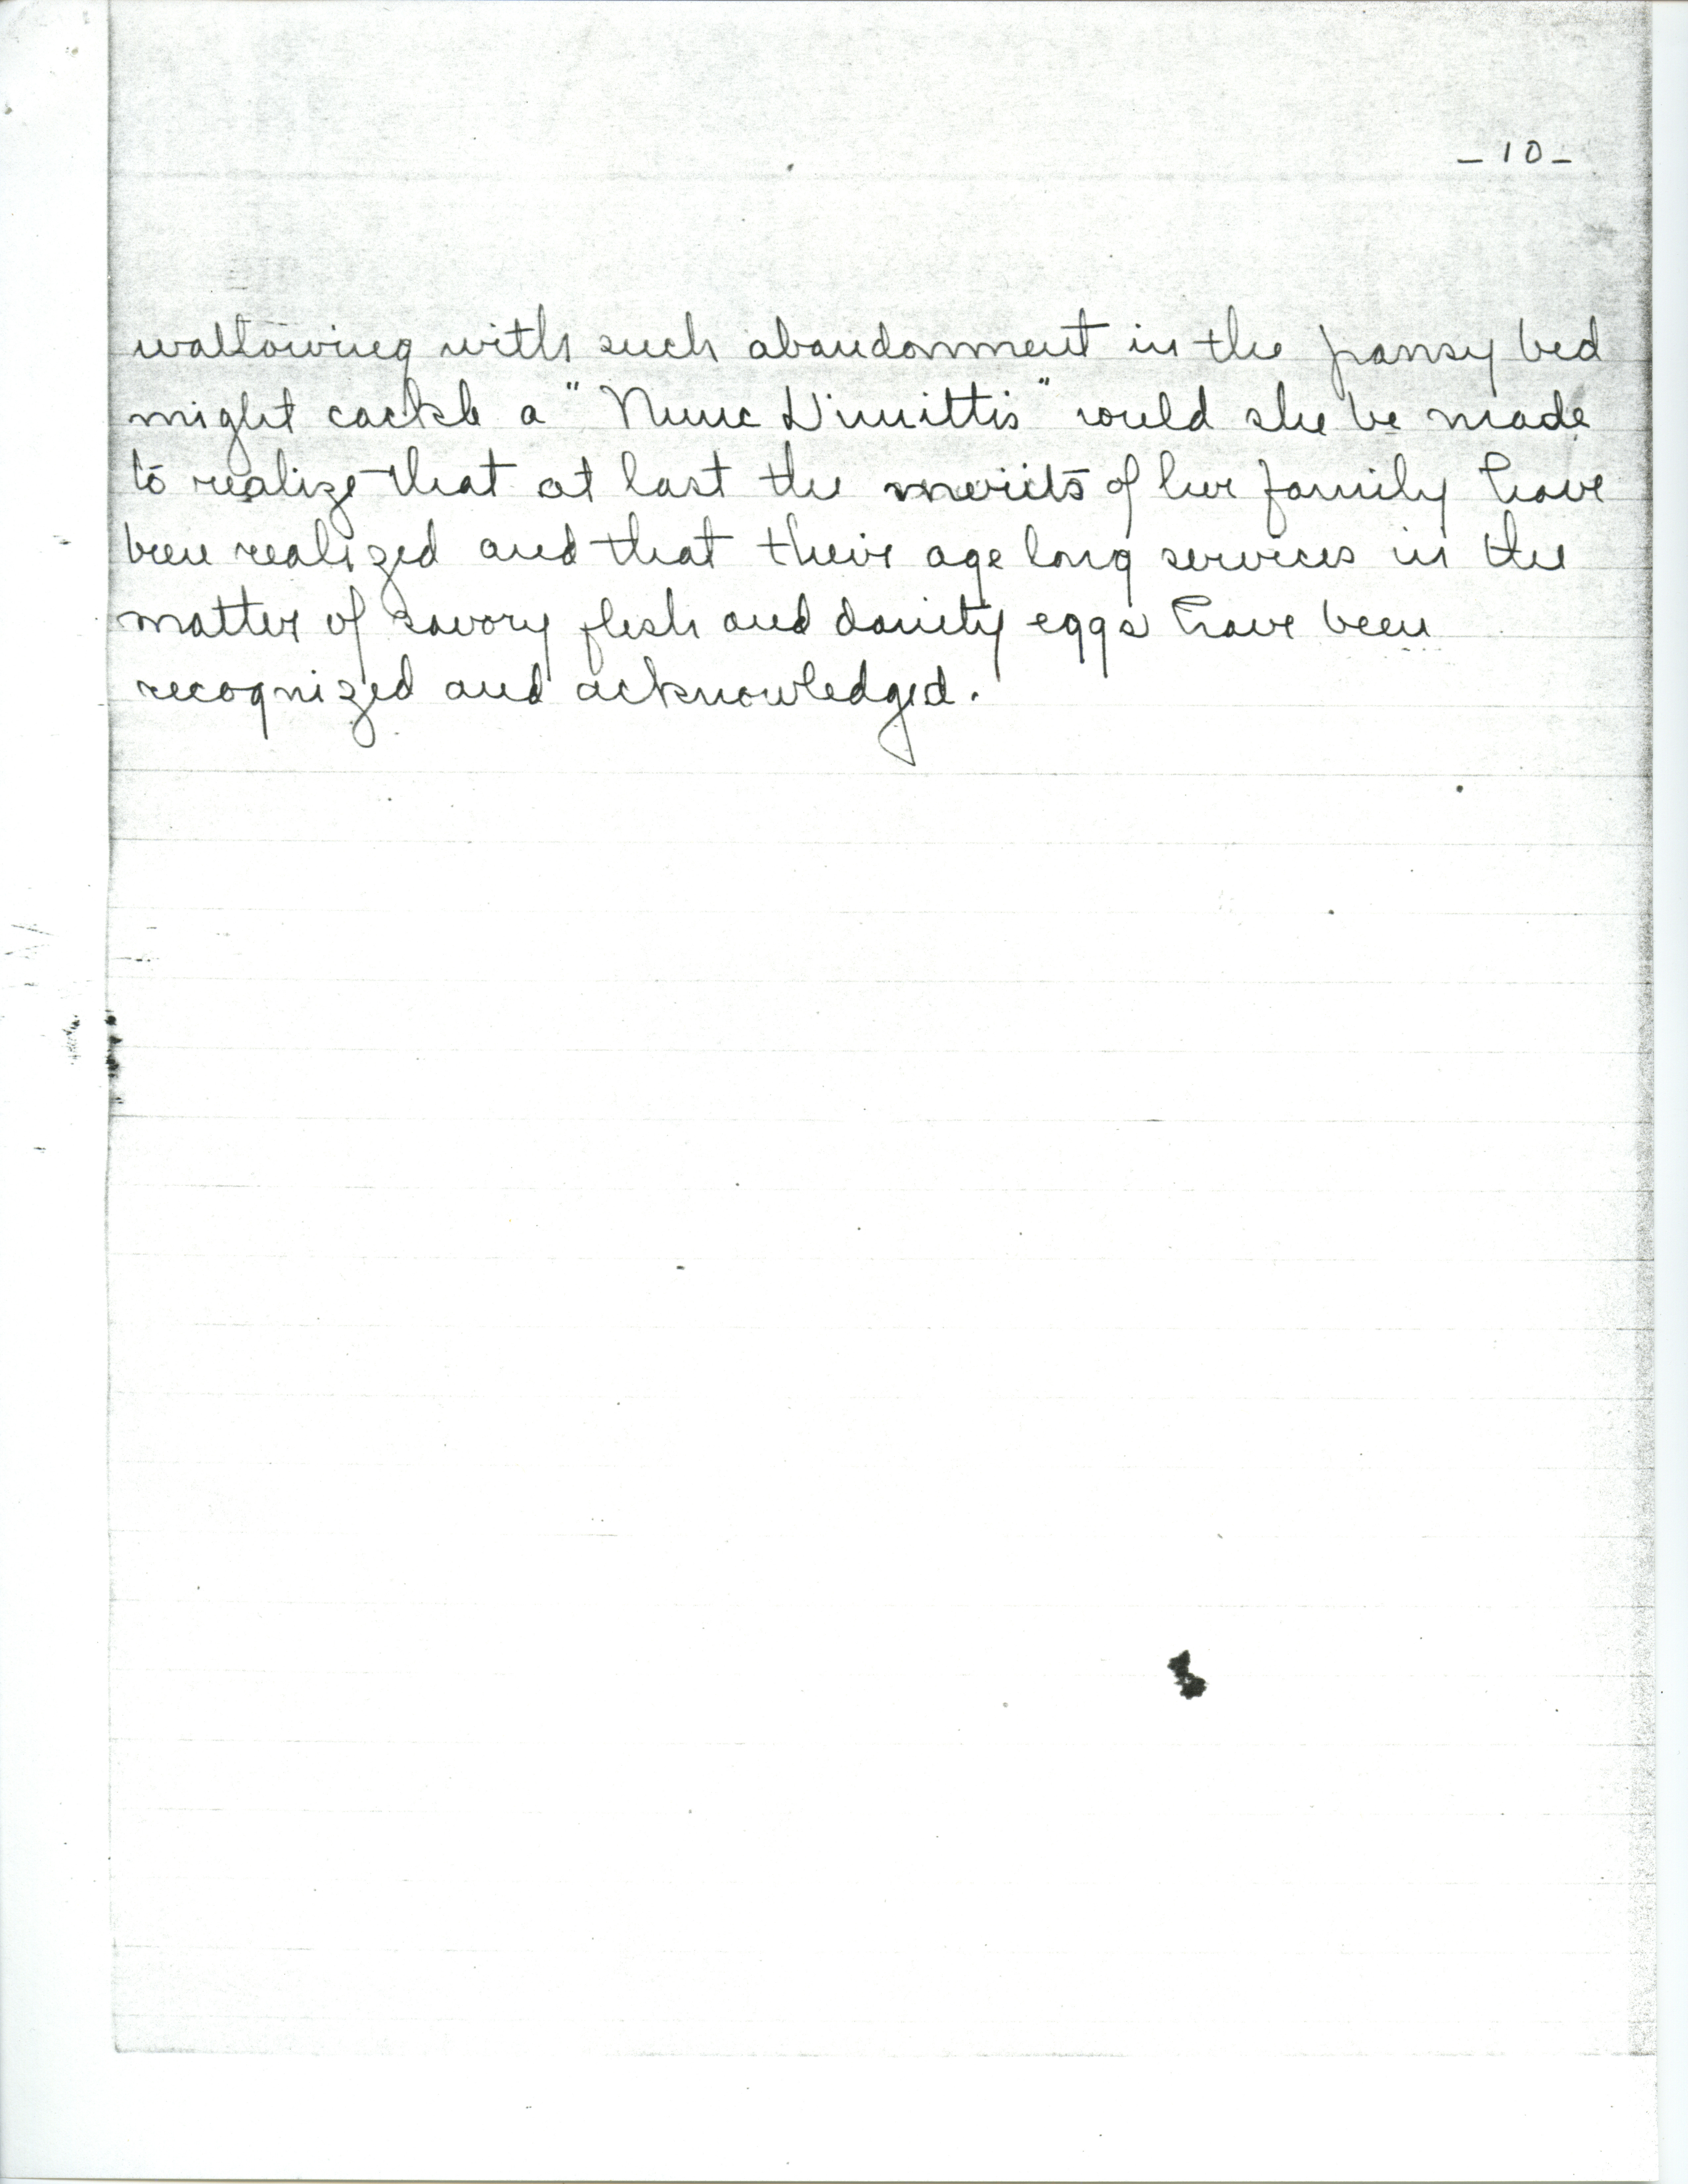 - 10 -
wallowing with such abandonment in the pansy bed
might cackle a "Nunc Dimittis" could she be made
to realize that at last the merits of her family have
been realized and that their age long services in the
matter of savory flesh and dainty eggs have been
recognized and acknowledged.